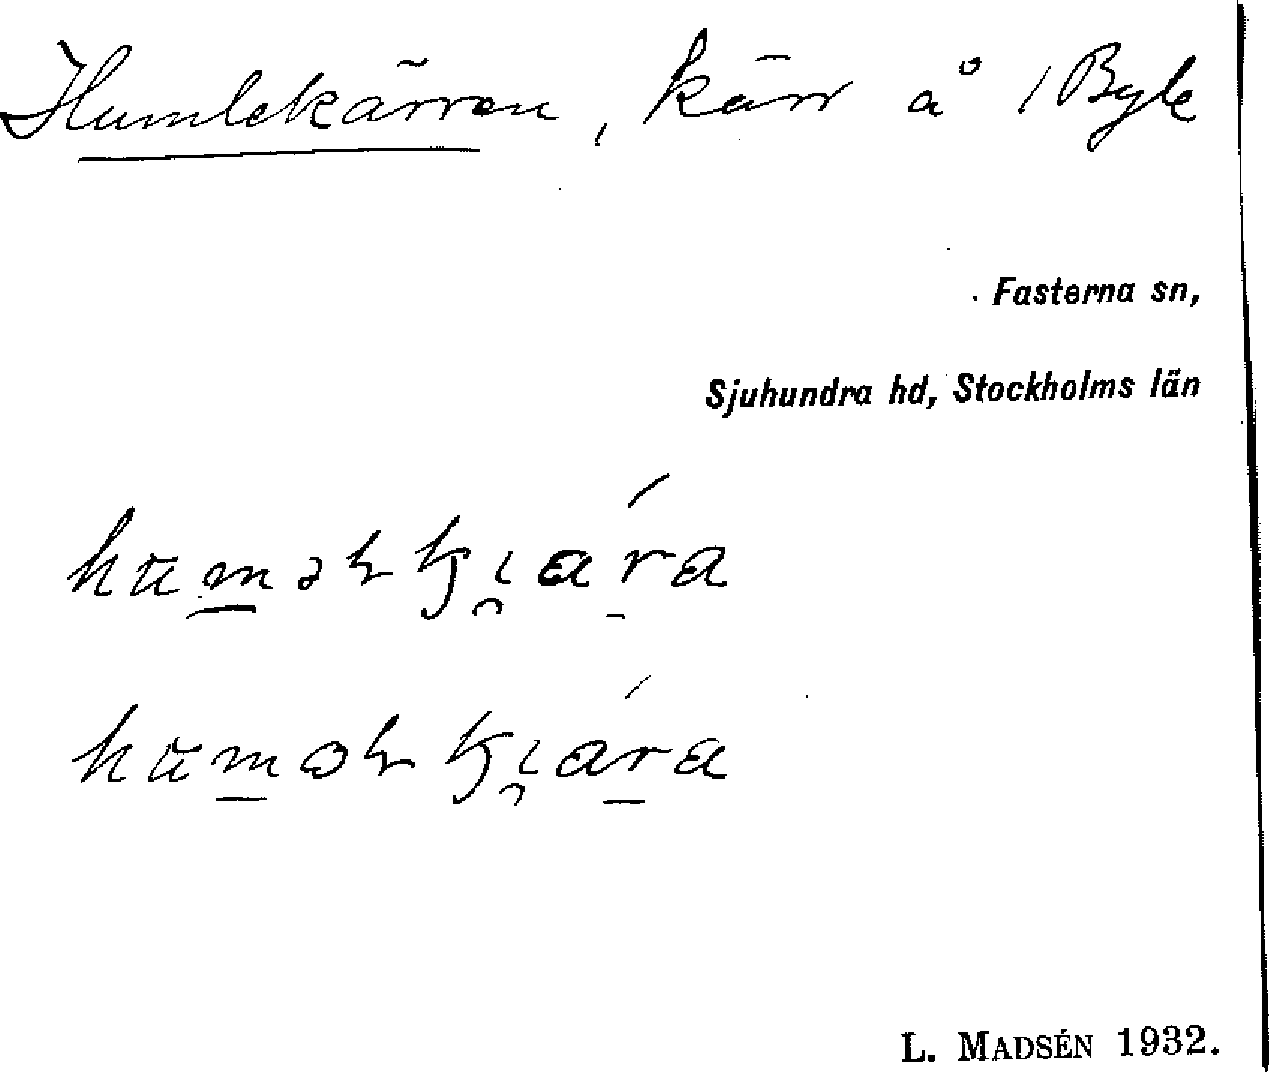 Humlekärren, kärr å 1 Byle
Fasterna sn,
Sjuhundra hd, Stockholms län
L. MADSÉN 1932.